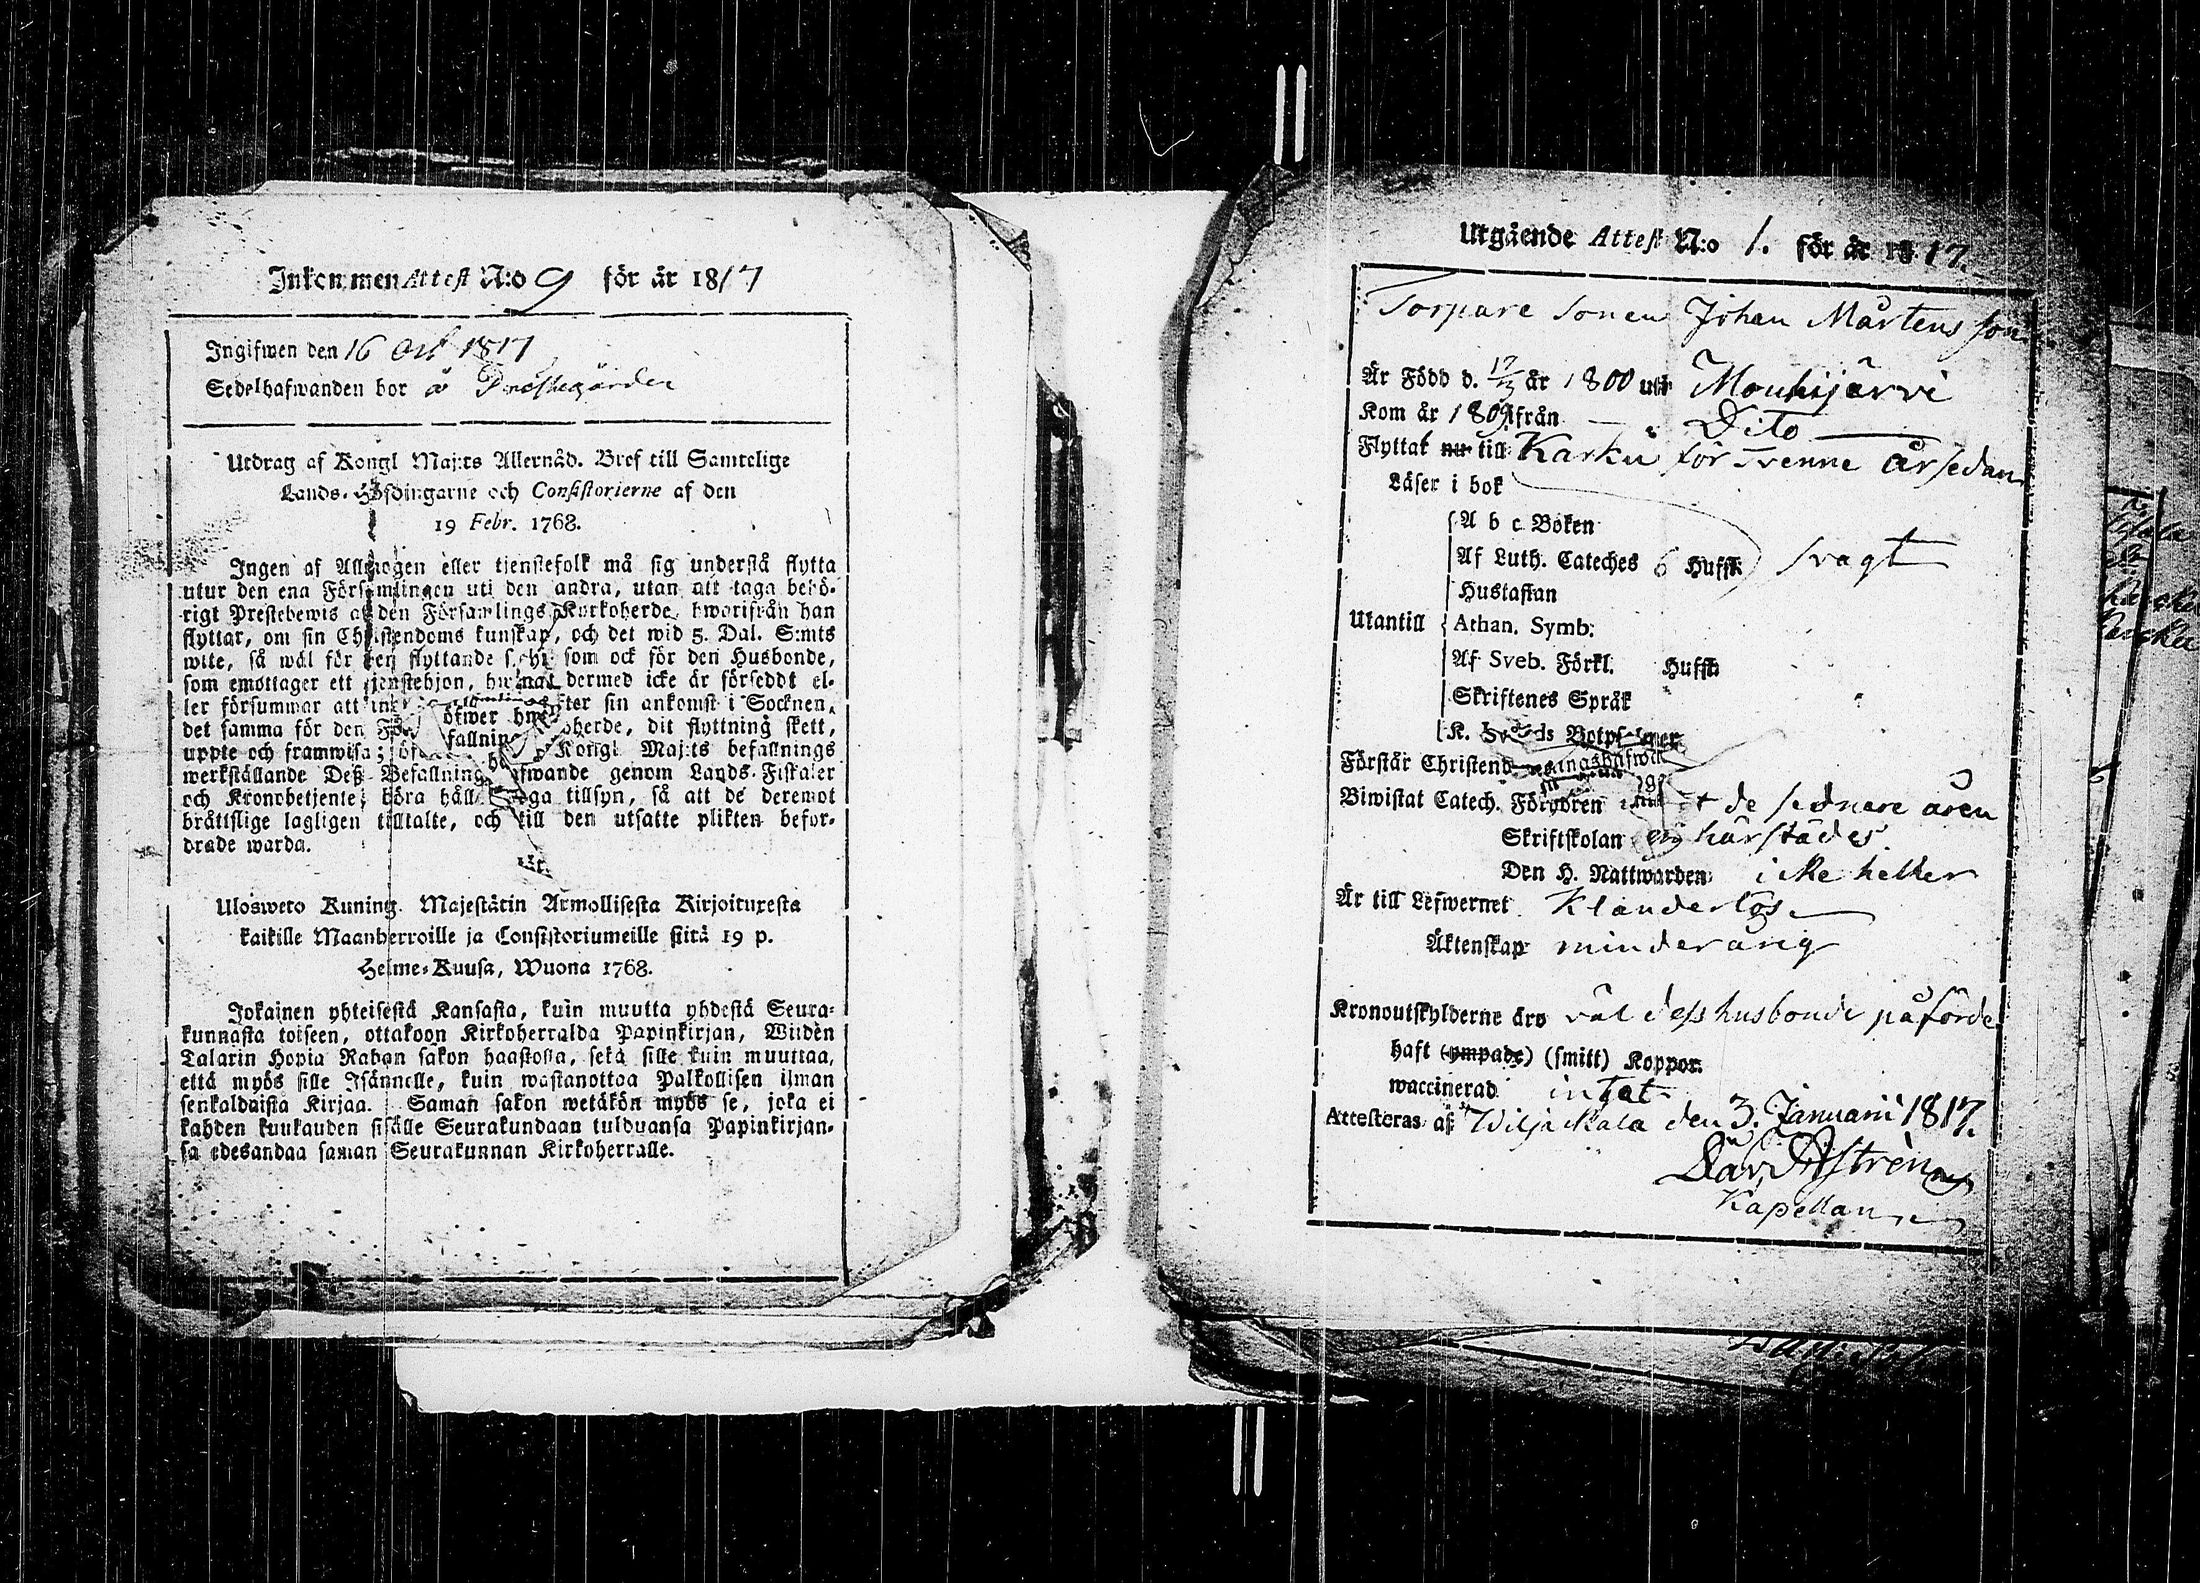 Inkommen Attest N:o 9 för år 1817
Ingifwen den 16 Oct 1817
Sedelhafwanden bor å Prestegården
Utdrag af Kongl Maj:ts Allernåd. Bref till Samtelige
Lands-Höfdingarne och Consistorierne af den
19 Febr. 1768.
Ingen af Allmogen eller tjenstefolk må sig understå flytta
utur den ena Församlingen uti den andra, utan att taga behö-
rigt Prestebewis af den Församlings Kyrkoherde, hworifrån han
flyttar, om sin Christendoms kunskap, och det wid 5. Dal. S:mts
wite, så wäl för den flyttande sjelf som ock för den Husbonde,
som emottager ett tjenstehjon, hwilket dermed icke är förseddt el-
ler försummar att efter sin ankomst i Socknen,
det samma för den herde, dit flyttning skett,
uppte och framwisa; Kongl Maj:ts befallnings
werkställande Deß Befallningshafwande genom Lands-Fiskaler
och Kronobetjente, böra hålla noga tillsyn, så att de deremot
bråttslige lagligen tilltalte, och till den utsatte plikten befor-
drade warda.
Ulosweto Kuning. Majestätin Armollisesta Kirjoituxesta
kaikille Maanherroille ja Consistoriumeille siitä 19 p.
Helme-Kuusa, Wuona 1768.
Jokainen yhteisestä Kansasta, kuin muutta yhdestä Seura-
kunnasta toiseen, ottakoon Kirkoherralda Papinkirjan, Wiiden
Talarin Hopia Rahan sakon haastolla, sekä sille kuin muuttaa,
että myös sille Isännelle, kuin wastanottaa Palkollisen ilman
senkaldaista Kirjaa. Saman sakon wetäkön myös se, joka ei
kahden kuukauden sisälle Seurakundaan tulduansa Papinkirjan-
sa edesandaa saman Seurakunnan Kirkoherralle.
Utgående Attest N:o 1. för år 1817.
Torpare sonen Johan Mårtens son
Är Född d. 17/3 år 1800 uti Mouhijärvi
Kom år 1809 ifrån Dito
Flyttat nu till Karku för tvenne år sedan
Läser i bok
A b c Boken
Af Luth. Cateches 6 Huffst svagt
Hustaflan
Utantill Athan. Symb.
Af Sveb. Förkl. Huffst
Skriftenes Språk
K. Botpsalmer
Förstår Christend
Biwistat Catech. Förhören de sednare åren
Skriftskolan ej härstädes.
Den H. Nattwarden icke heller
Är till Lefwernet Klanderlös
Äktenskap minderårig
Kronoutskylderne äro väl dess husbonde påförde
haft (ympade) (smitt) Koppor.
waccinerad intet
Attesteras af Viljakkala den 3. Januarii 1817.
Kapellan